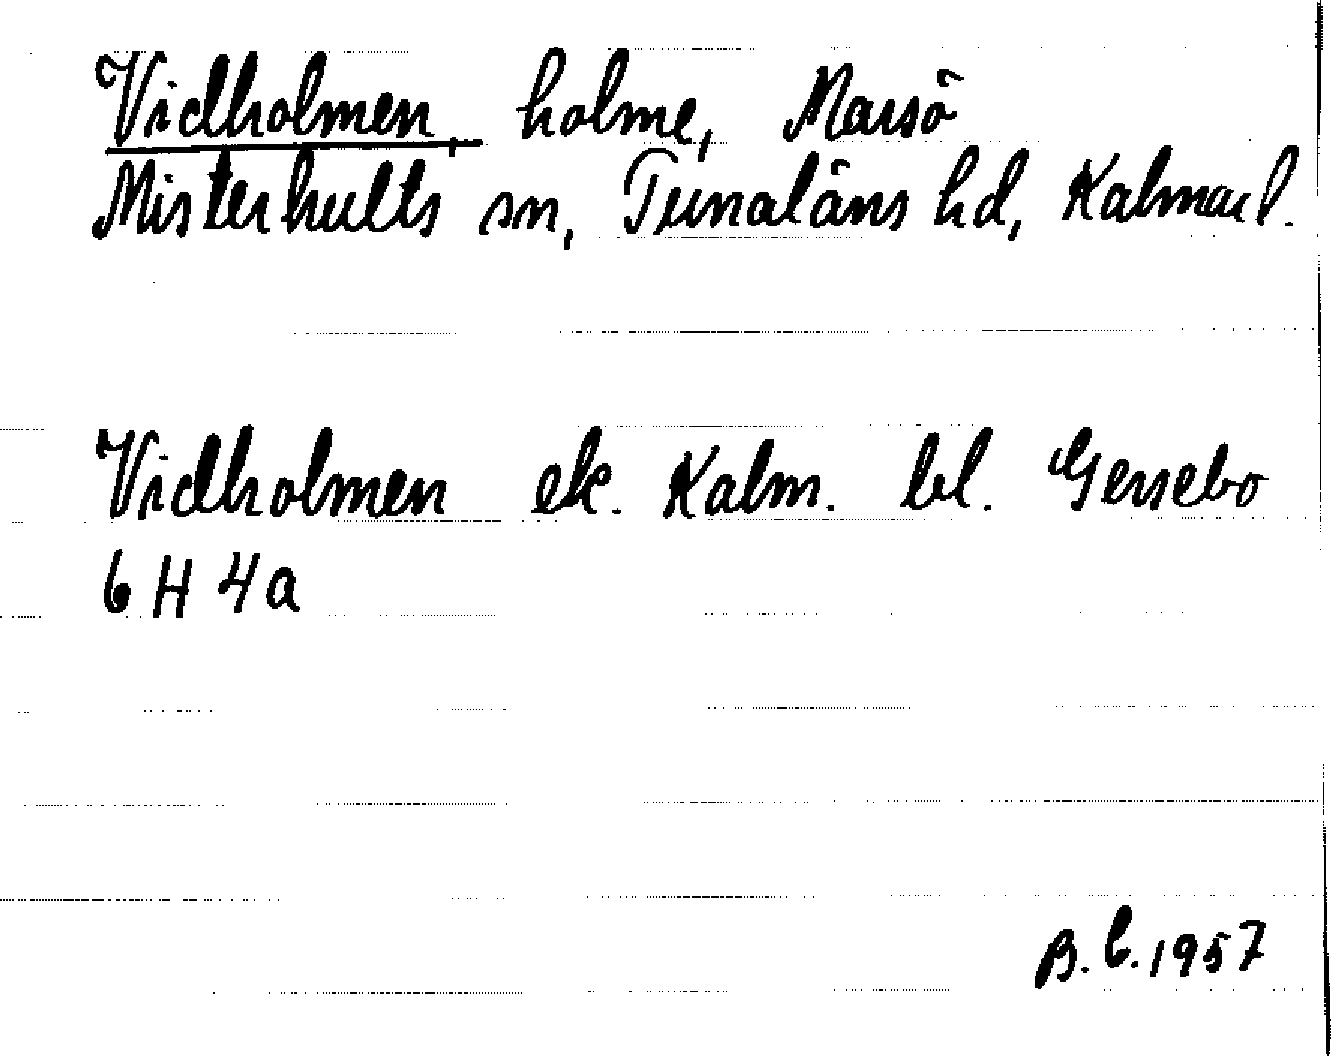 Vidholmen, holme, Marsö
Misterhults sn, Tunaläns hd, Kalmar l.
Vidholmen ek. Kalm. bl. Gersebo
6 H 4a
B.C. 1957